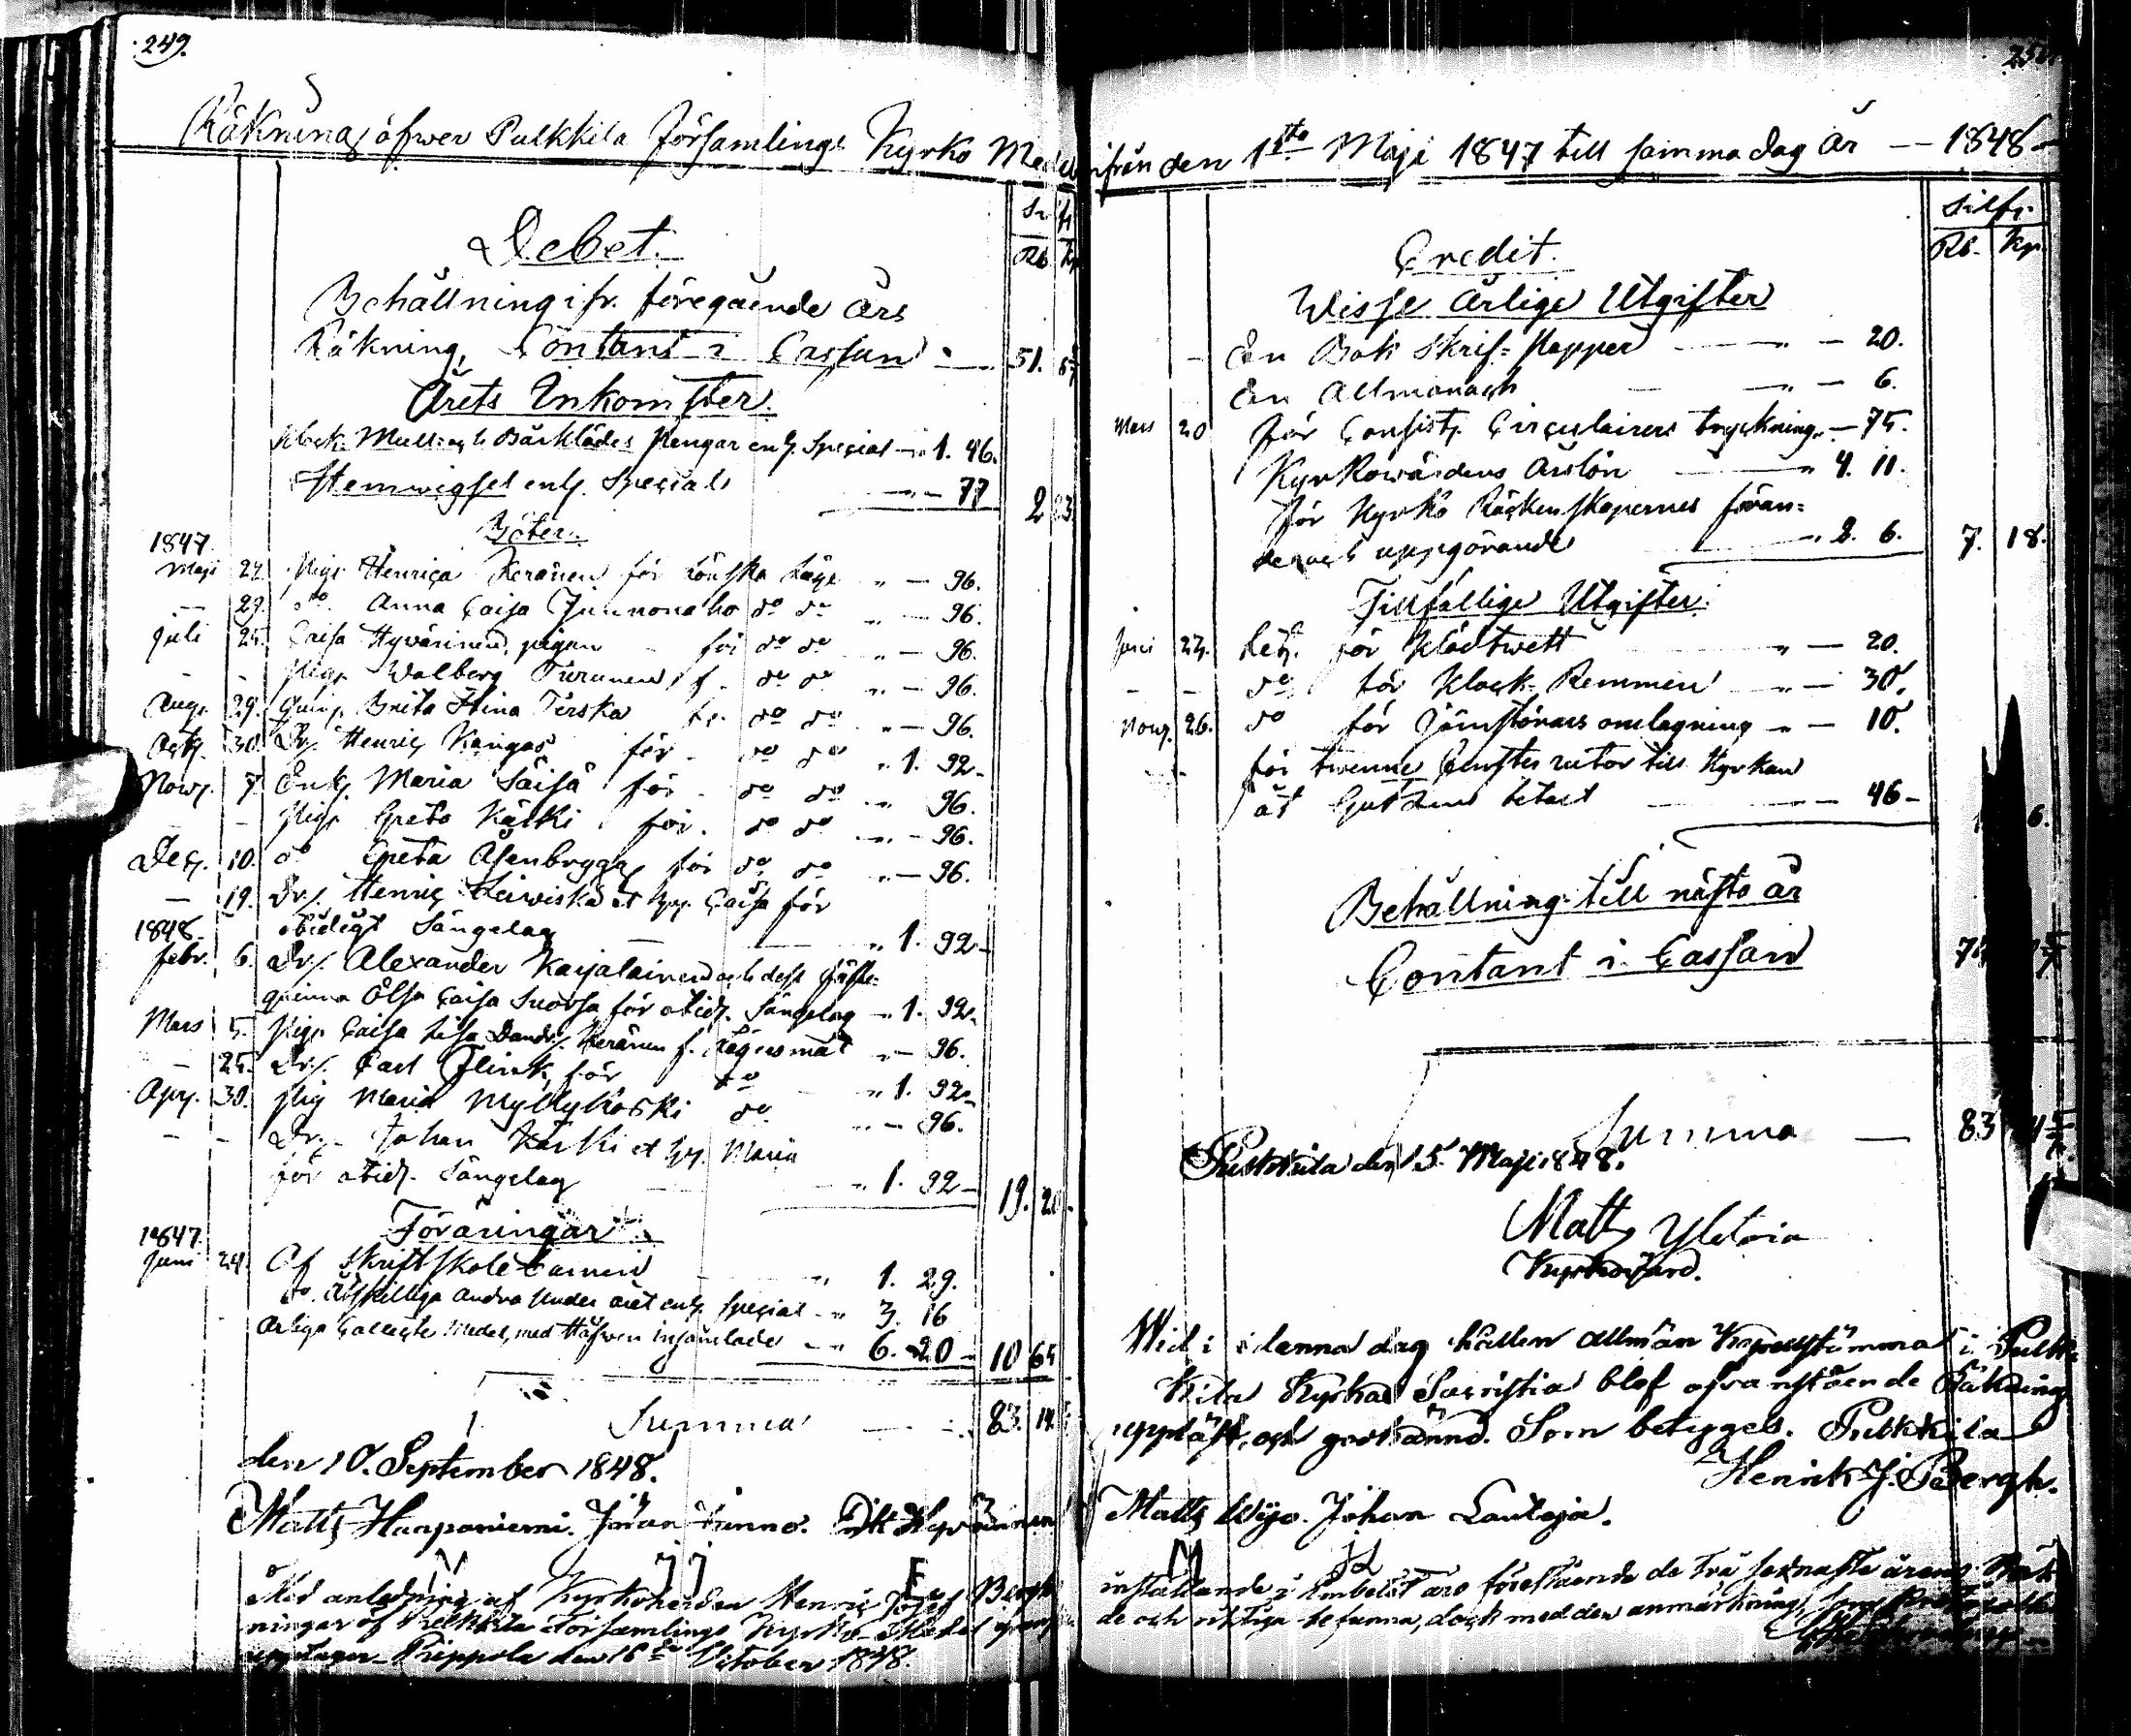 249.
Räkning öfwer Pulkkila Församlings Kyrko Medel
Debet.
Behållning ifr. föregående års
Räkning, Contant i Cassan — 51.
Årets Inkomster.
Klock- Mull- och Bårklädes Pengar enl. Special — 1. 46.
Stemwigsel enl. Special — 77 2 23
Böter.
1847.
Maji 24. Pig. Henrica Keränen för Lönska läge " — 96.
— 29. do Anna Caisa Junnonaho do do " — 96.
Juli 25. Caisa Hyvärinen, pigan för do do " — 96.
— - Pig. Walborg Turunen f. do do " — 96.
Aug. 29. Brita Stina Terska för do do " — 96.
Oct. 30. Dr. Henric Kangas för do do " 1. 92-
Nov. 7. Enk. Maria Säisä för do do " 96.
— - Pig. Greta Kärki för do do " — 96.
Dec. 10. do Greta Åsenbrygg för do do " — 96.
— 19. Dr. Henric Leiviskä et Caisa för
1848. otidigt Sängelag " 1. 92-
febr. 6. Dr. Alexander Karjalainen och dess fäste-
qvinna Elsa Caisa Suorsa för otid. Sängelag " 1. 92-
Mars 5. Pig. Caisa Lisa Keränen f. Lägersmål " — 96.
— 25. Dr. Carl Flink, för do " 1. 92-
Apr. 30. Pig Maria Myllykoski do " — 96.
— - Dr. Johan Kärki et Maria
för otid. Sängelag " 1. 92- 19. 20.
Föräringar
1847.
Juni 24 Af Skriftskole barnen " 1. 29.
Do Åtskilliga andra under året enl. Special " 3. 16
Årliga Collecte Medel, med Håfwen insamlade " 6. 20 - 10 65
Summa — 83. 14
den 10. September 1848.
Matts Haaponiemi. Johan
M J J E
Med anledning af Kyrkoherden Henric Josef Bergh
ningar öf Pulkkila Församlings Kyrko Medel
Piippola den 16de October 1848.
ifrån den 1sta Maji 1847 till samma dag År — 1848 —
Silfr.
Rb. Kp.
Credit.
Wisse Årlige Utgifter
En Bok Skrif- Papper " — 20.
En Allmanach " — 6.
Mars 20 För Consist. Circulairers tryckning " — 75.
Kyrkowärdens Årslön " 4. 11.
För Kyrko Räckenskapernes föran-
de och uppgörande " 2. 6. 7. 18.
Tillfällige Utgifter.
Juni 24. för Klädtwett " — 20.
- - do för Klock Remmen " — 30.
Nov. 26. do för omlagning " — 10.
- - för twenne fenster rutor till Kyrkan
åt betalt — 46 -
6.
Behållning till nästa år
Contant i Cassan
Summa — 83
Pulkkila den 15. Maji 1848.
Matts
Kyrkovärd.
Wid i denna dag hållen allmän i Pulk-
kila Kyrkas Sacristia blef ofvanstående Räkning
uppläst, och godkännd. Som betygas. Pulkkila
Henrik J. Bergh.
Matts Johan Lantaja.
M JL
inställande i Embetet äro förestående de två senaste årens Räk-
de och riktiga befunna, dock med den anmärkning, som